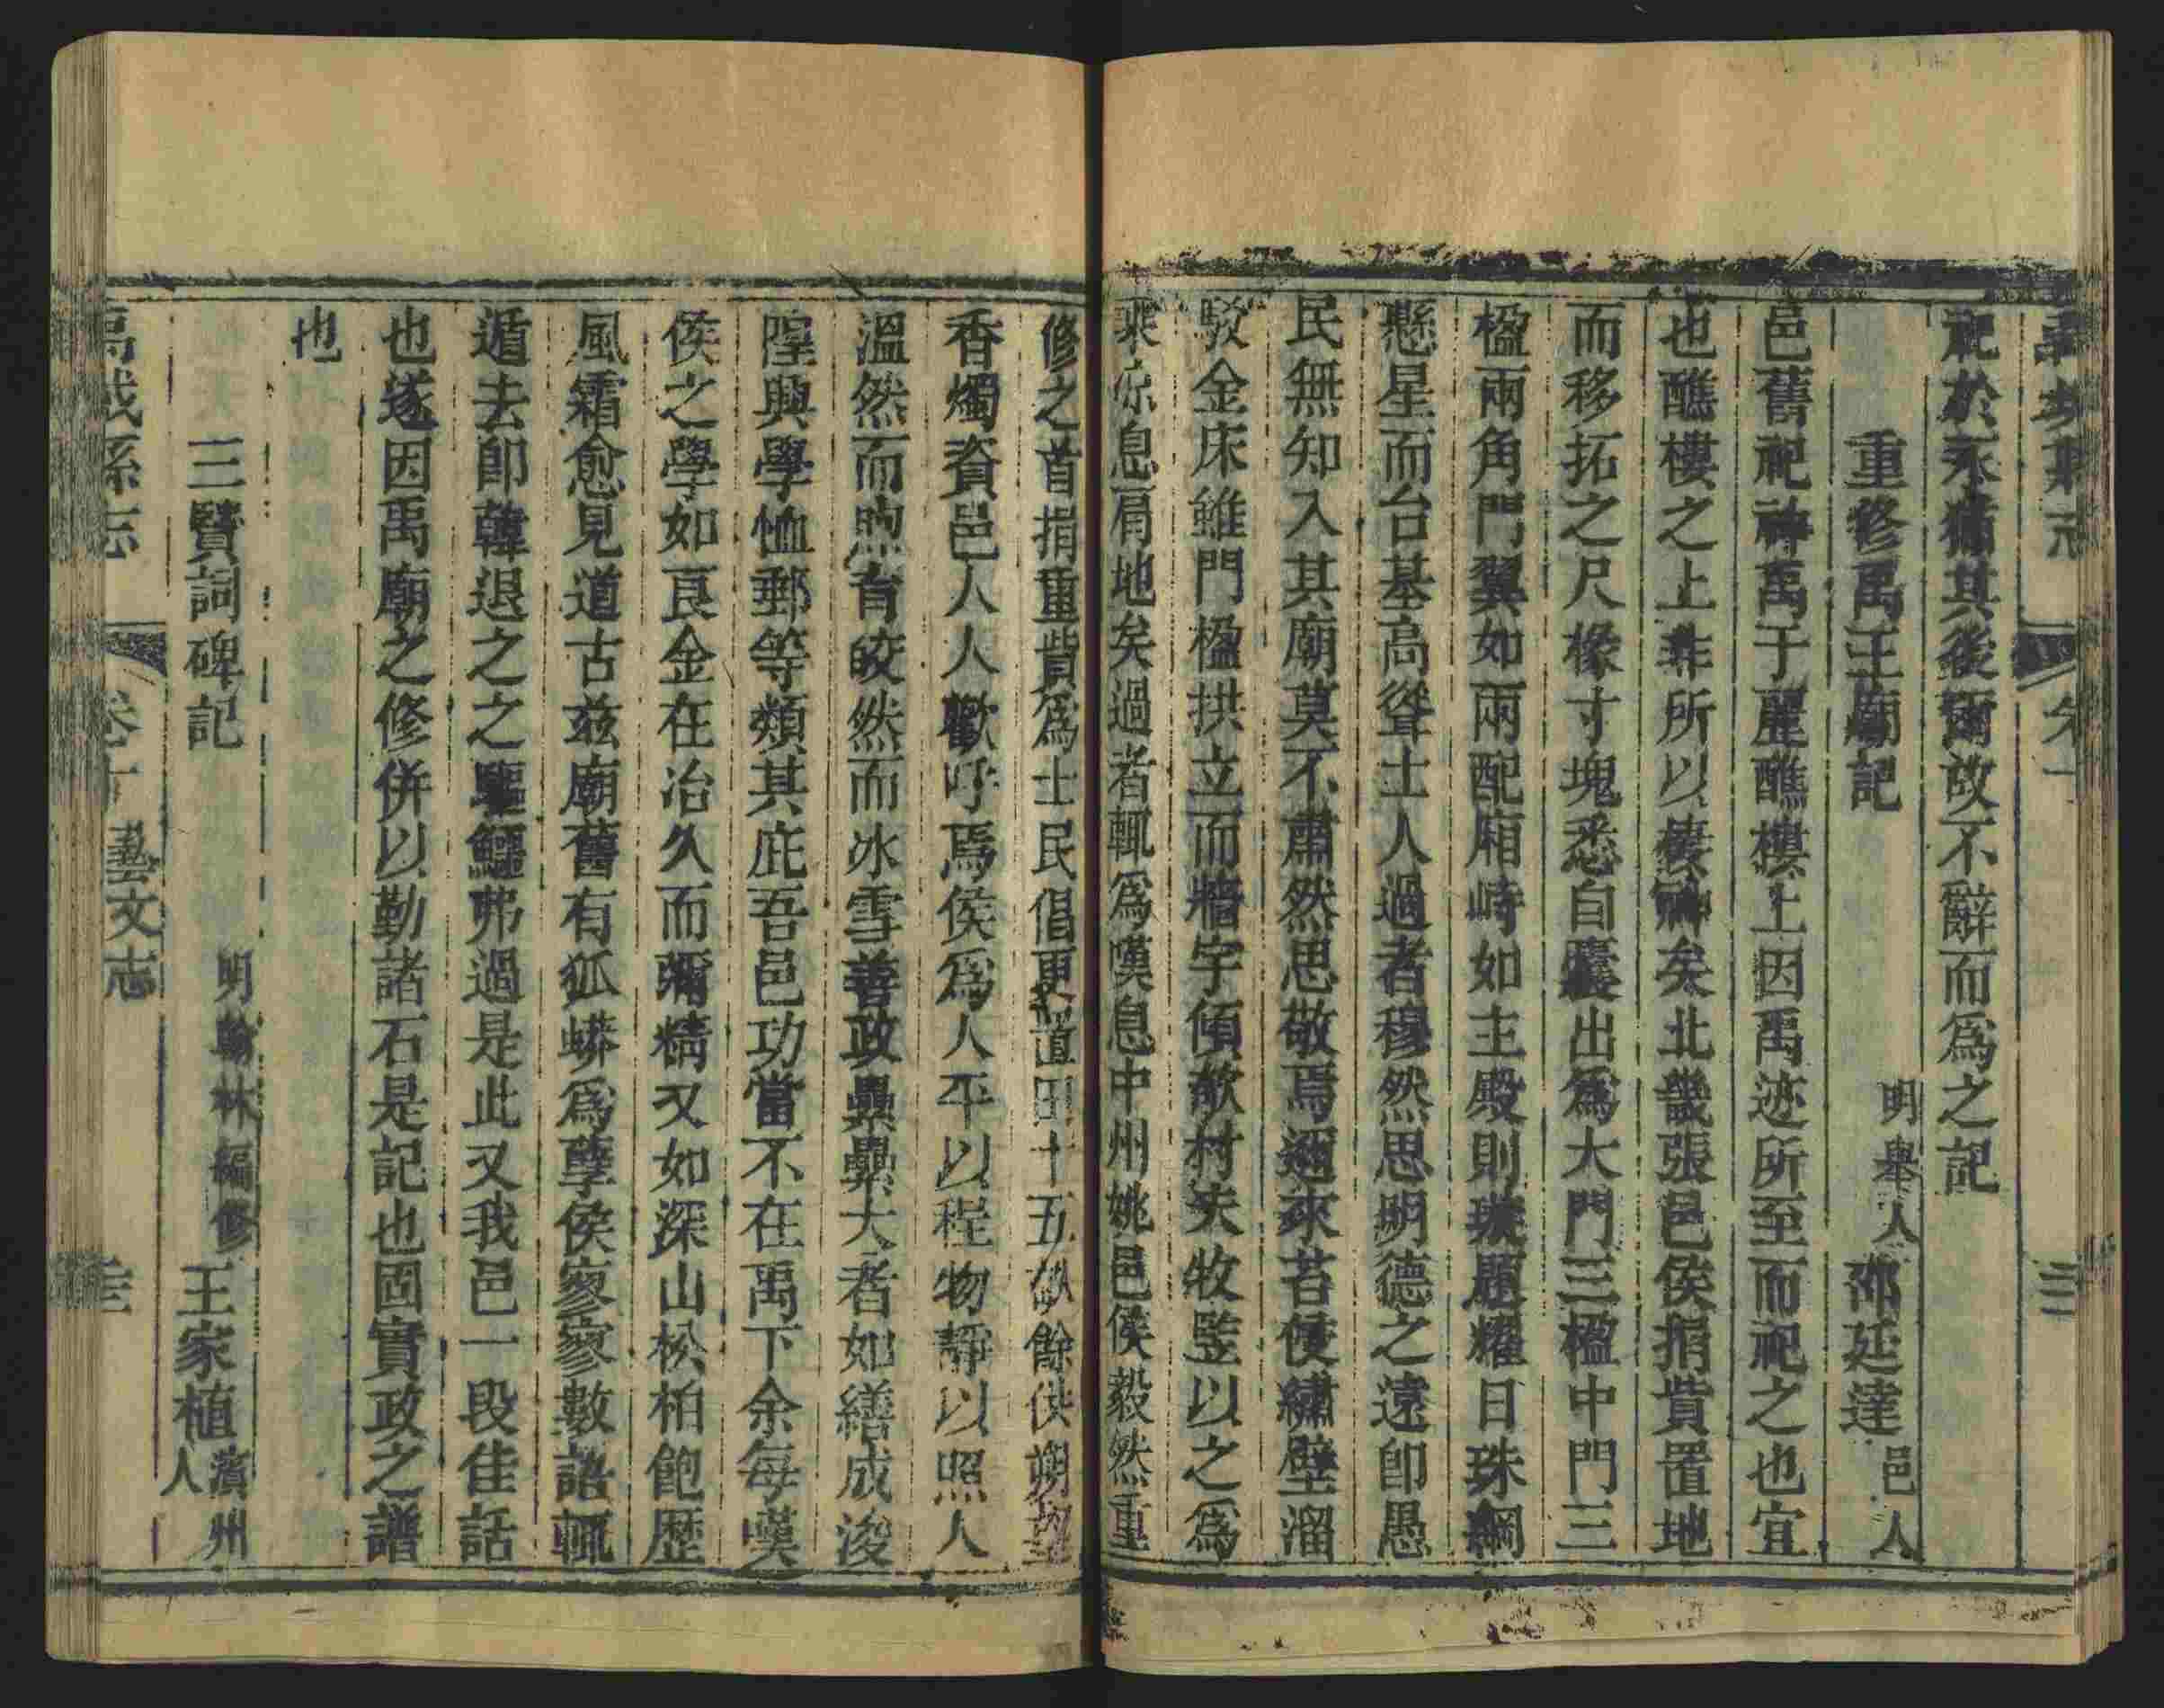 禹城縣志
卷十
祀於永猶其後爾故不辭而爲之記
重修禹王廟記 明舉人邵廷達邑人
邑舊祀神禹于麗譙樓上因禹迹所至而祀之也宜
也譙樓之上非所以棲神矣北畿張邑侯捐貲置地
而移拓之尺椽寸塊悉自囊出爲大門三楹中門三
楹兩角門翼如兩配廂峙如主殿則璇題耀日珠綱
懸星而台基高聳士人過者穆然思明德之遠卽愚
民無知入其廟莫不肅然思敬焉邇來苔侵繡壁溜
駁金床雖門楹拱立而牆宇傾欹村夫牧豎以之爲
乘凉息肩地矣過者輒爲嘆息中州姚邑侯毅然重
修之首捐重貲爲士民倡更置田十五畝餘供朔望
香燭資邑人人歡呼焉侯爲人平以程物靜以照人
溫然而煦育皎然而冰雪善政纍纍大者如繕成浚
隍興學恤郵等類其庇吾邑功當不在禹下余每嘆
侯之學如良金在冶久而彌精又如深山松柏飽歷
風霜愈見道古兹廟舊有狐蟒爲孽侯寥寥數語輒
遁去卽韓退之之驅鱷弗過是此又我邑一段佳話
也遂因禹廟之修併以勒諸石是記也固實政之譜
也
三賢詞碑記 明翰林編修王家植濱州人
禹城縣志
卷十 藝文志